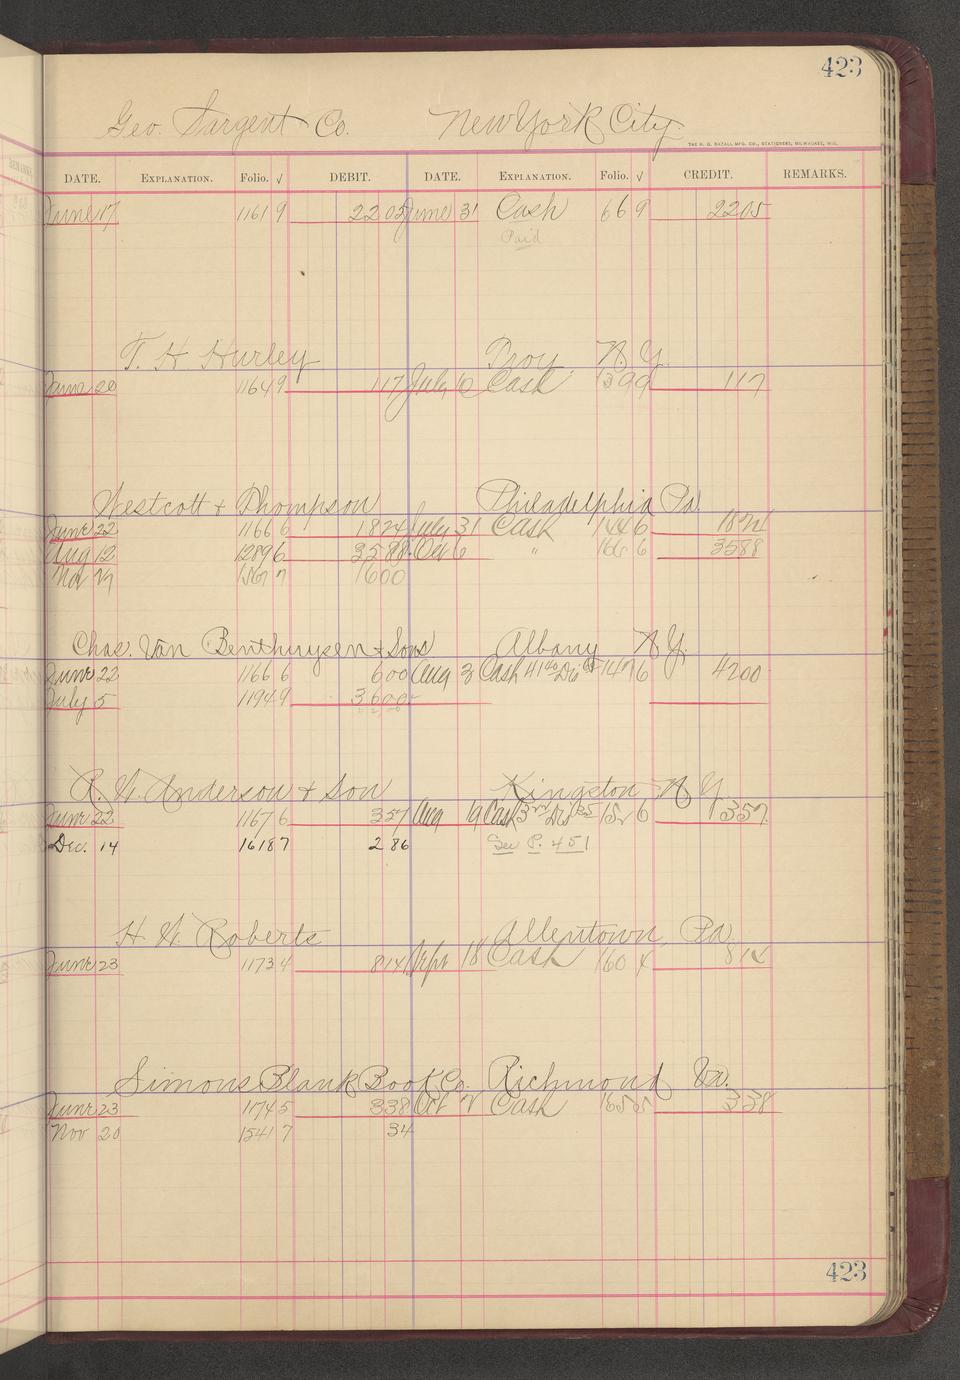 423
Geo. Sargent Co. New York City.
THE H. G. RAZALL MFG. CO., STATIONERS, MILWAUKEE, WIS.
DATE. EXPLANATION. Folio. √ DEBIT. DATE. EXPLANATION. Folio. √ CREDIT. REMARKS.
June 17 1161 9 22 05 June 31 Cash 66 9 22 05
Paid
T. H. Hurley Troy, N.Y.
June 20 1164 9 1 17 July 10 Cash 139 9 1 17
Westcott & Thompson Philadelphia Pa.
June 22 1166 6 18 24 July 31 Cash 6 18 24
Aug 12 1289 6 35 88 Oct 6 " 6 35 88
Nov 7 16 00
Chas. Van Benthuysen & Sons Albany N.Y.
June 22 1166 6 6 00 Aug 3 Cash 41 40 147 6 42 00
July 5 1194 9 36 00
A. W. Anderson & Son Kingston N.Y.
June 22 1167 6 3 57 Aug 19 Cash 6 3 57
Dec. 14 1618 7 2 86 See P. 451
H. W. Roberts Allentown, Pa.
June 23 1173 4 8 14 Sept 18 Cash 160 4 8 14
Simons Blank Book Co. Richmond Va.
June 23 1174 5 3 38 Oct Cash 165 5 3 38
Nov 20 1541 7 34
423